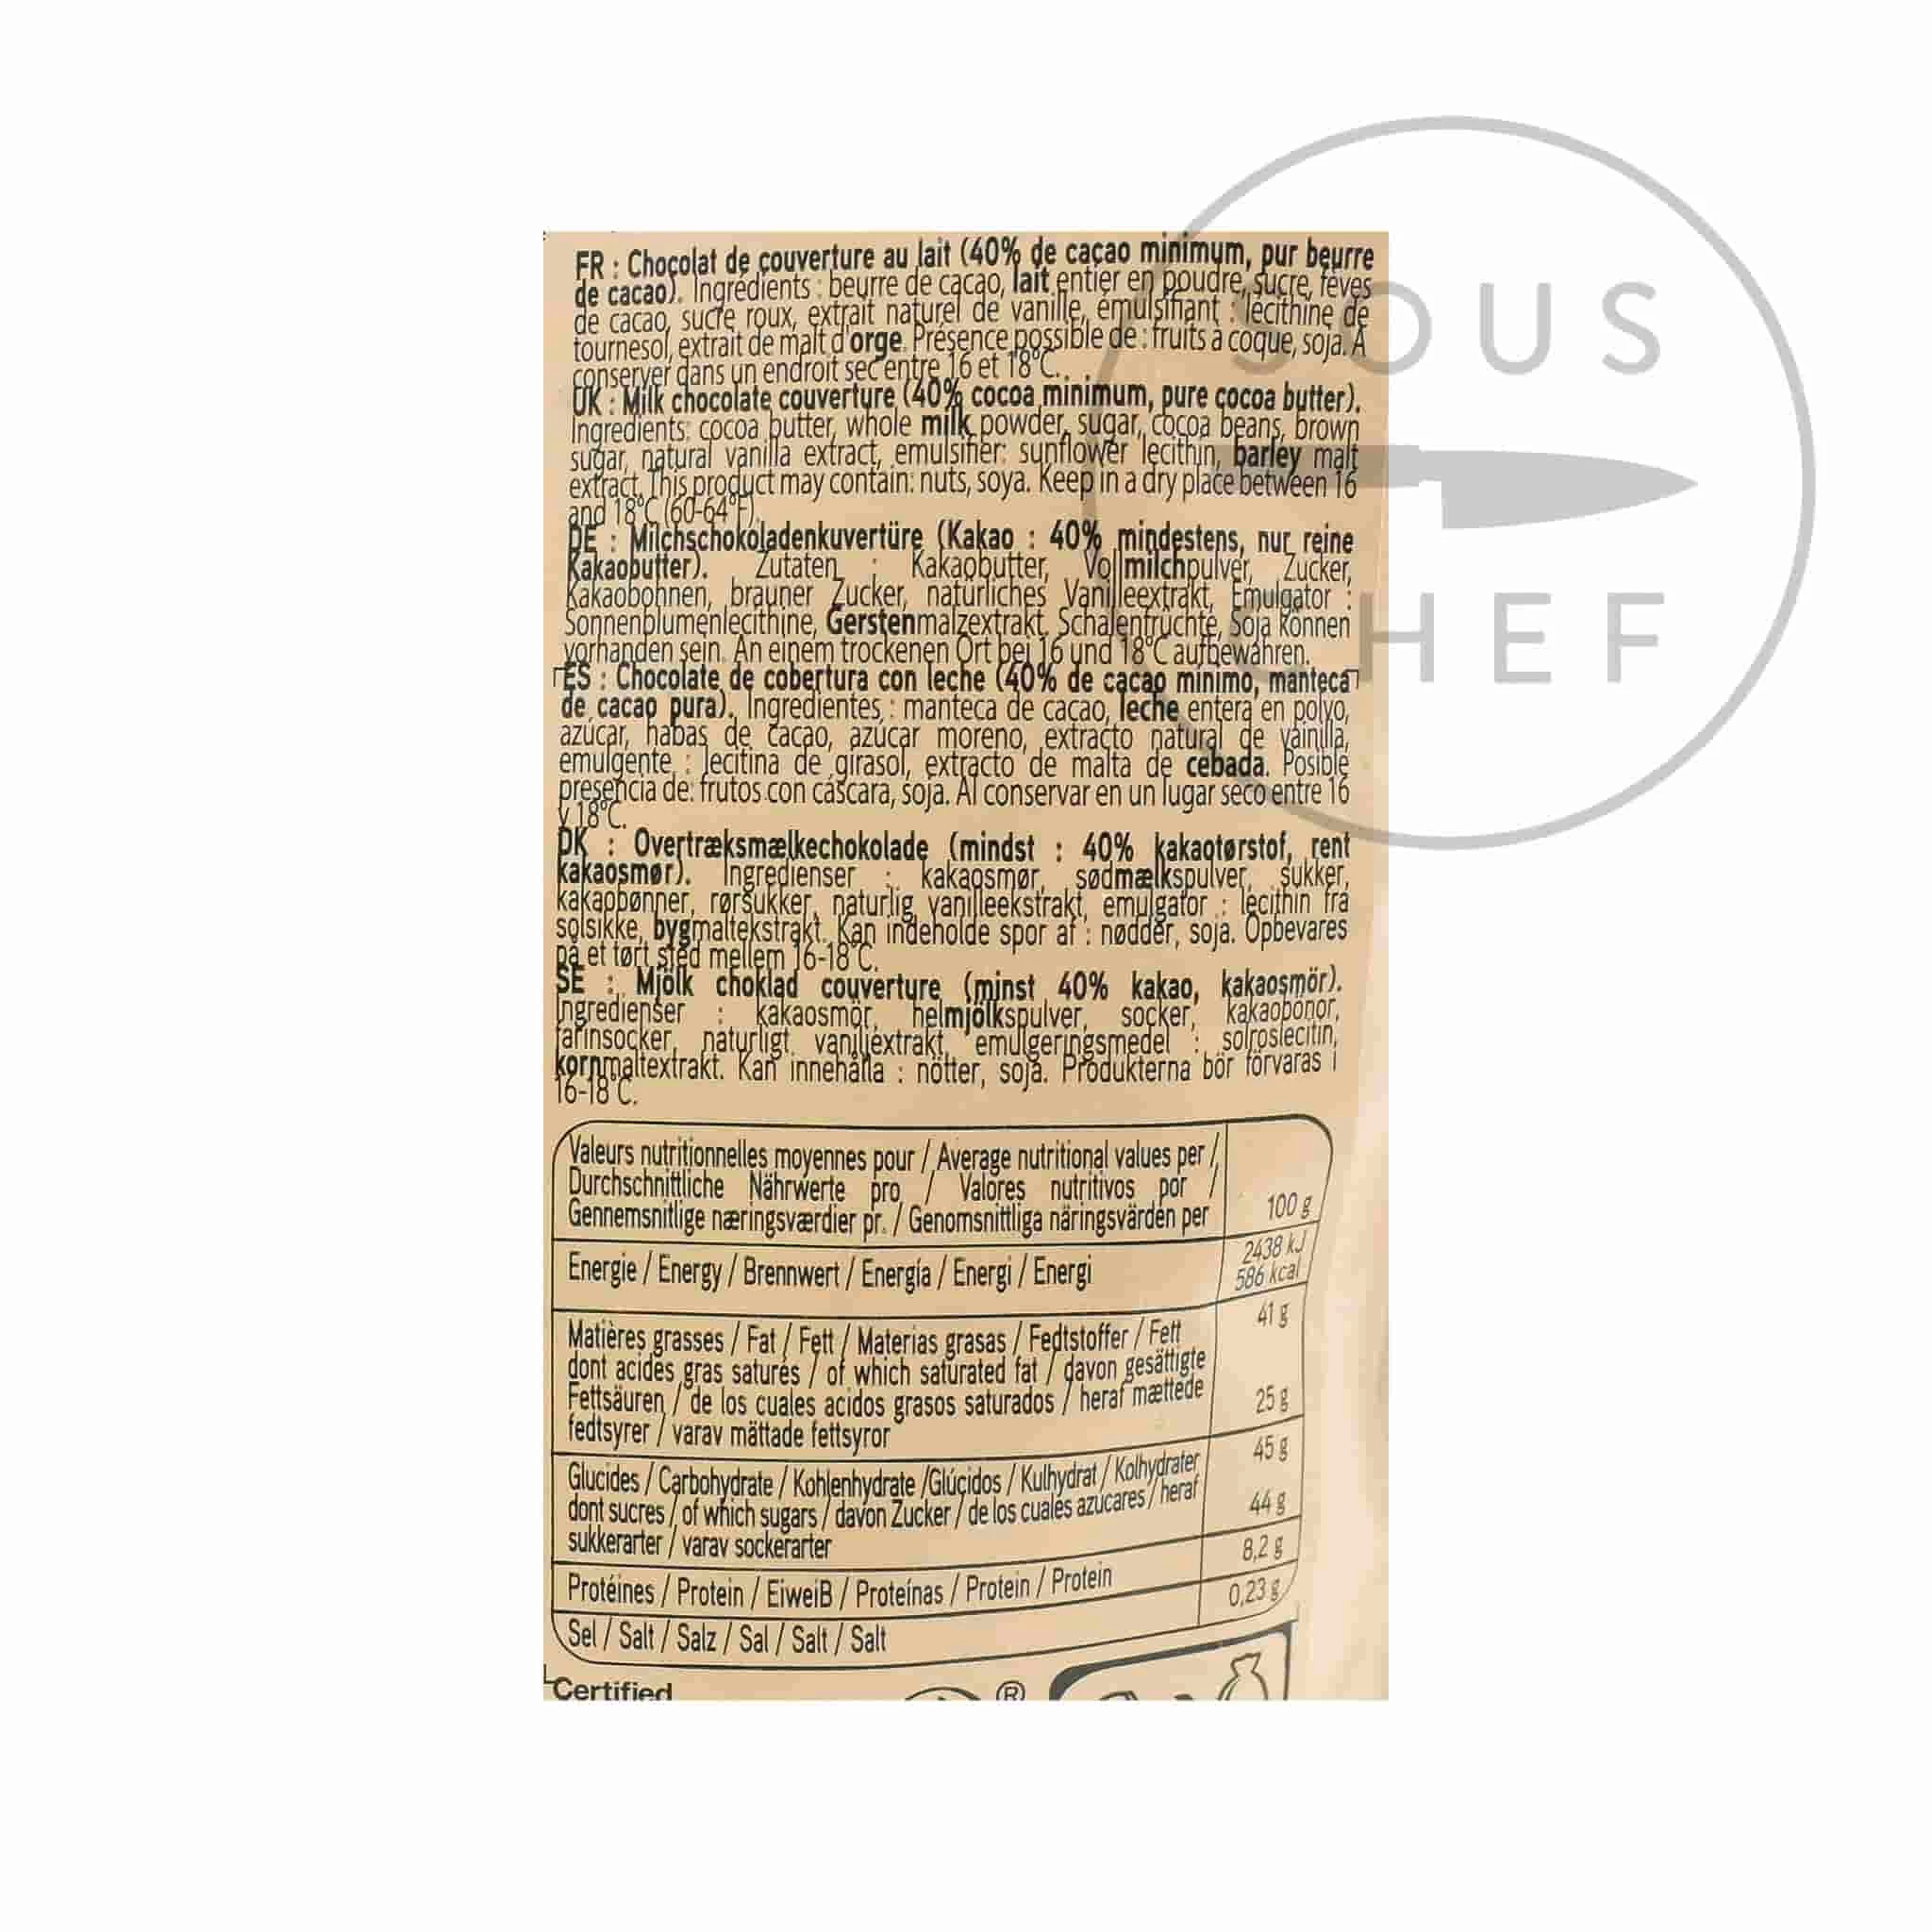 FR : Chocolat de couverture au lait (40% de cacao minimum, pur beurre
de cacao). Ingrédients : beurre de cacao, lait entier en poudre, sucre, fèves
de cacao, sucre roux, extrait naturel de vanille, émulsifiant : lécithine de
tournesol, extrait de malt d'orge. Présence possible de : fruits à coque, soja. A
conserver dans un endroit sec entre 16 et 18°C.
UK : Milk chocolate couverture (40% cocoa minimum, pure cocoa butter).
Ingredients: cocoa butter, whole milk powder, sugar, cocoa beans, brown
sugar, natural vanilla extract, emulsifier: sunflower lecithin, barley malt
extract. This product may contain: nuts, soya. Keep in a dry place between 16
and 18°C (60-64°F).
DE : Milchschokoladenkuvertüre (Kakao : 40% mindestens, nur reine
Kakaobutter). Zutaten : Kakaobutter, Vollmilchpulver, Zucker,
Kakaobohnen, brauner Zucker, natürliches Vanilleextrakt, Emulgator :
Sonnenblumenlecithine, Gerstenmalzextrakt. Schalenfrüchte, Soja können
vorhanden sein. An einem trockenen Ort bei 16 und 18°C aufbewahren.
ES : Chocolate de cobertura con leche (40% de cacao mínimo, manteca
de cacao pura). Ingredientes : manteca de cacao, leche entera en polvo,
azúcar, habas de cacao, azúcar moreno, extracto natural de vainilla,
emulgente : lecitina de girasol, extracto de malta de cebada. Posible
presencia de: frutos con cáscara, soja. Al conservar en un lugar seco entre 16
y 18°C.
DK : Overtræksmælkechokolade (mindst : 40% kakaotørstof, rent
kakaosmør). Ingredienser : kakaosmør, sødmælkspulver, sukker,
kakaobønner, rørsukker, naturlig vanilleekstrakt, emulgator : lecithin fra
solsikke, bygmaltekstrakt. Kan indeholde spor af : nødder, soja. Opbevares
på et tørt sted mellem 16-18°C.
SE : Mjölk choklad couverture (minst 40% kakao, kakaosmör).
Ingredienser : kakaosmör, helmjölkspulver, socker, kakaobönor,
farinsocker, naturligt vaniljextrakt, emulgeringsmedel : solroslecitin,
kornmaltextrakt. Kan innehålla : nötter, soja. Produkterna bör förvaras i
16-18°C.
Valeurs nutritionnelles moyennes pour / Average nutritional values per /
Durchschnittliche Nährwerte pro / Valores nutritivos por /
Gennemsnitlige næringsværdier pr. / Genomsnittliga näringsvärden per 100 g
Energie / Energy / Brennwert / Energía / Energi / Energi 2438 kJ
586 kcal
Matières grasses / Fat / Fett / Materias grasas / Fedtstoffer / Fett 41 g
dont acides gras saturés / of which saturated fat / davon gesättigte
Fettsäuren / de los cuales acidos grasos saturados / heraf mættede
fedtsyrer / varav mättade fettsyror 25 g
Glucides / Carbohydrate / Kohlenhydrate /Glúcidos / Kulhydrat / Kolhydrater 45 g
dont sucres / of which sugars / davon Zucker / de los cuales azucares / heraf
sukkerarter / varav sockerarter 44 g
Protéines / Protein / EiweiB / Proteínas / Protein / Protein 8,2 g
Sel / Salt / Salz / Sal / Salt / Salt 0,23 g
Certified
®
SOUS
CHEF